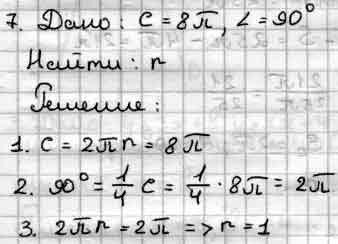 7. Дано: C = 8π, ∠ = 90°
Найти: r
Решение:
1. C = 2πr = 8π
2. 90° = 1/4 C = 1/4 · 8π = 2π
3. 2πr = 2π => r = 1